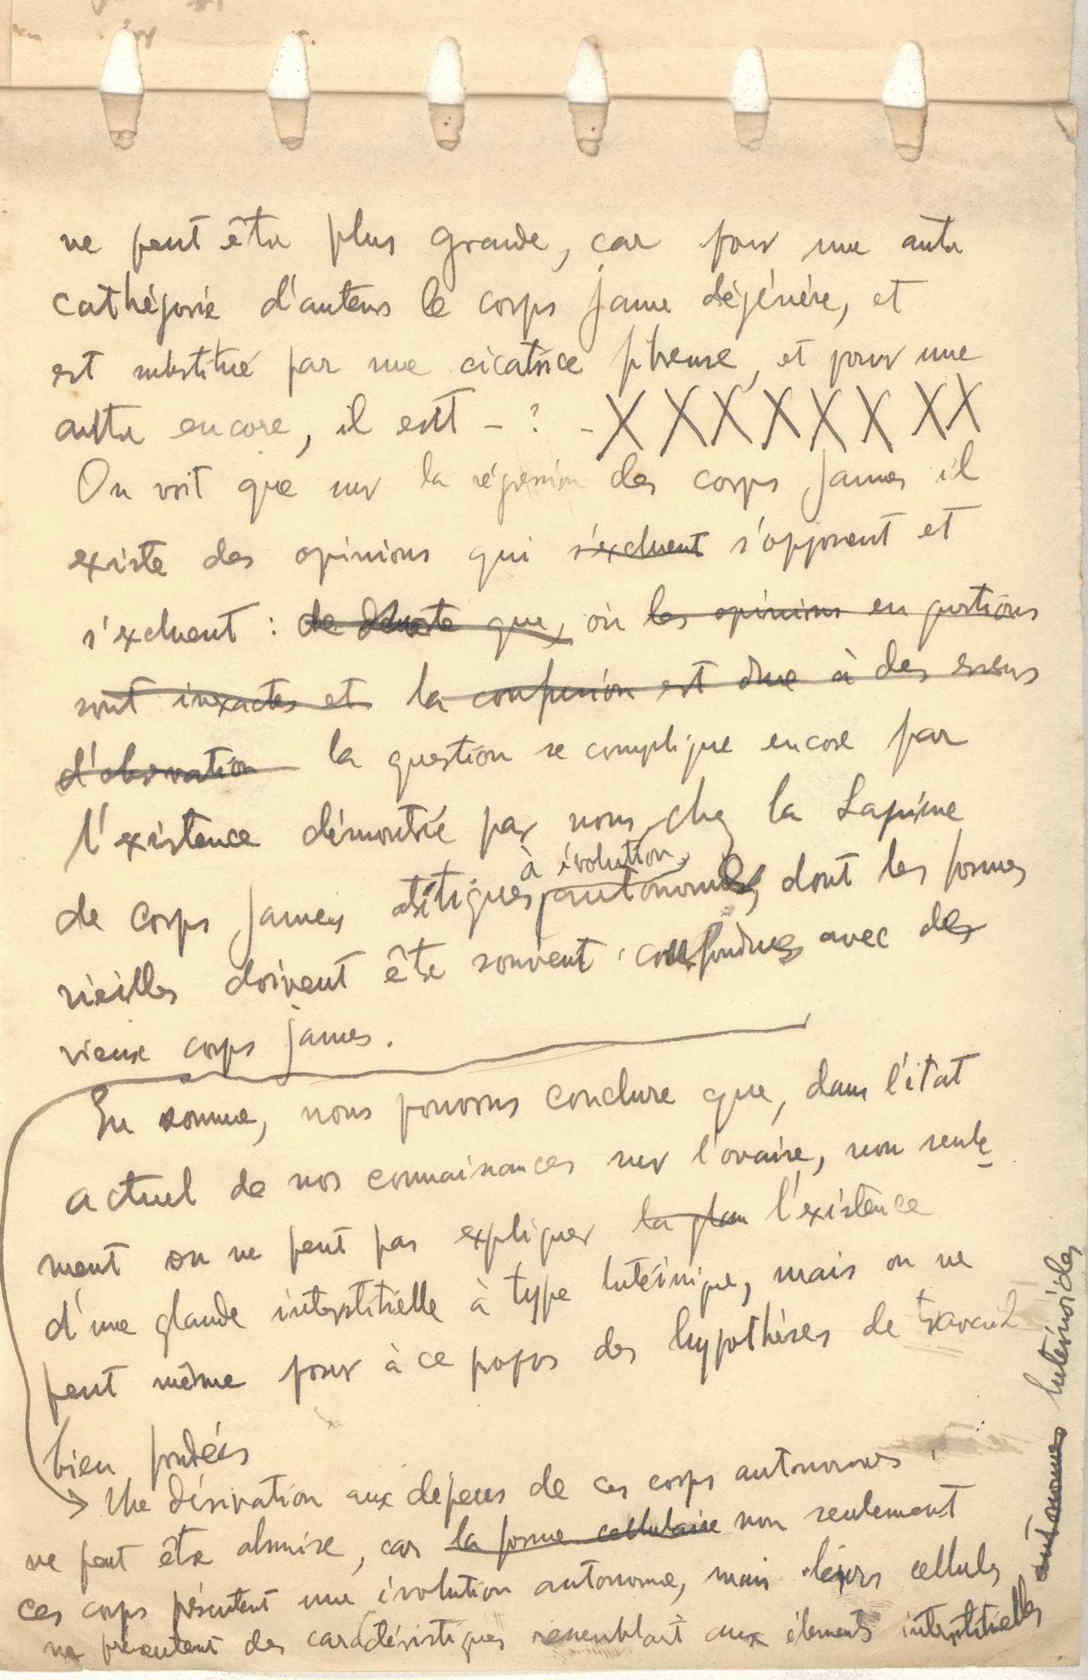 ne peut être plus grande, car pour une autre
cathégorie d'auteurs le corps jaune dégénère, et
est substitué par une cicatrice fibreuse, et pour une
autre encore, il est – ? – X X X X X X X X
On voit que sur la régression des corps jaunes il
existe des opinions qui s'excluent s'opposent et
s'excluent : que, où les opinions en questions
sont inexactes et la confusion est due à des erreurs
d'observation la question se complique encore par
l'existence démontrée par nous chez la Lapine
à évolution
de corps jaunes atétiques autonomes, dont les formes
vieilles doivent être souvent confondues avec des
vieux corps jaunes.
En somme, nous pouvons conclure que, dans l'état
actuel de nos connaissances sur l'ovaire, non seule-
ment on ne peut pas expliquer la plan l'existence
d'une glande interstitielle à type lutéinique, mais on ne
peut même poser à ce propos des hypothèses de travail
bien fondées
Une dérivation aux dépens de ces corps autonomes
ne peut être admise, car la forme cellulaire non seulement
ces corps présentent une évolution autonome, mais leurs cellules
ne présentent des caractéristiques ressemblant aux éléments interstitielles
autonomes lutéinoïdes